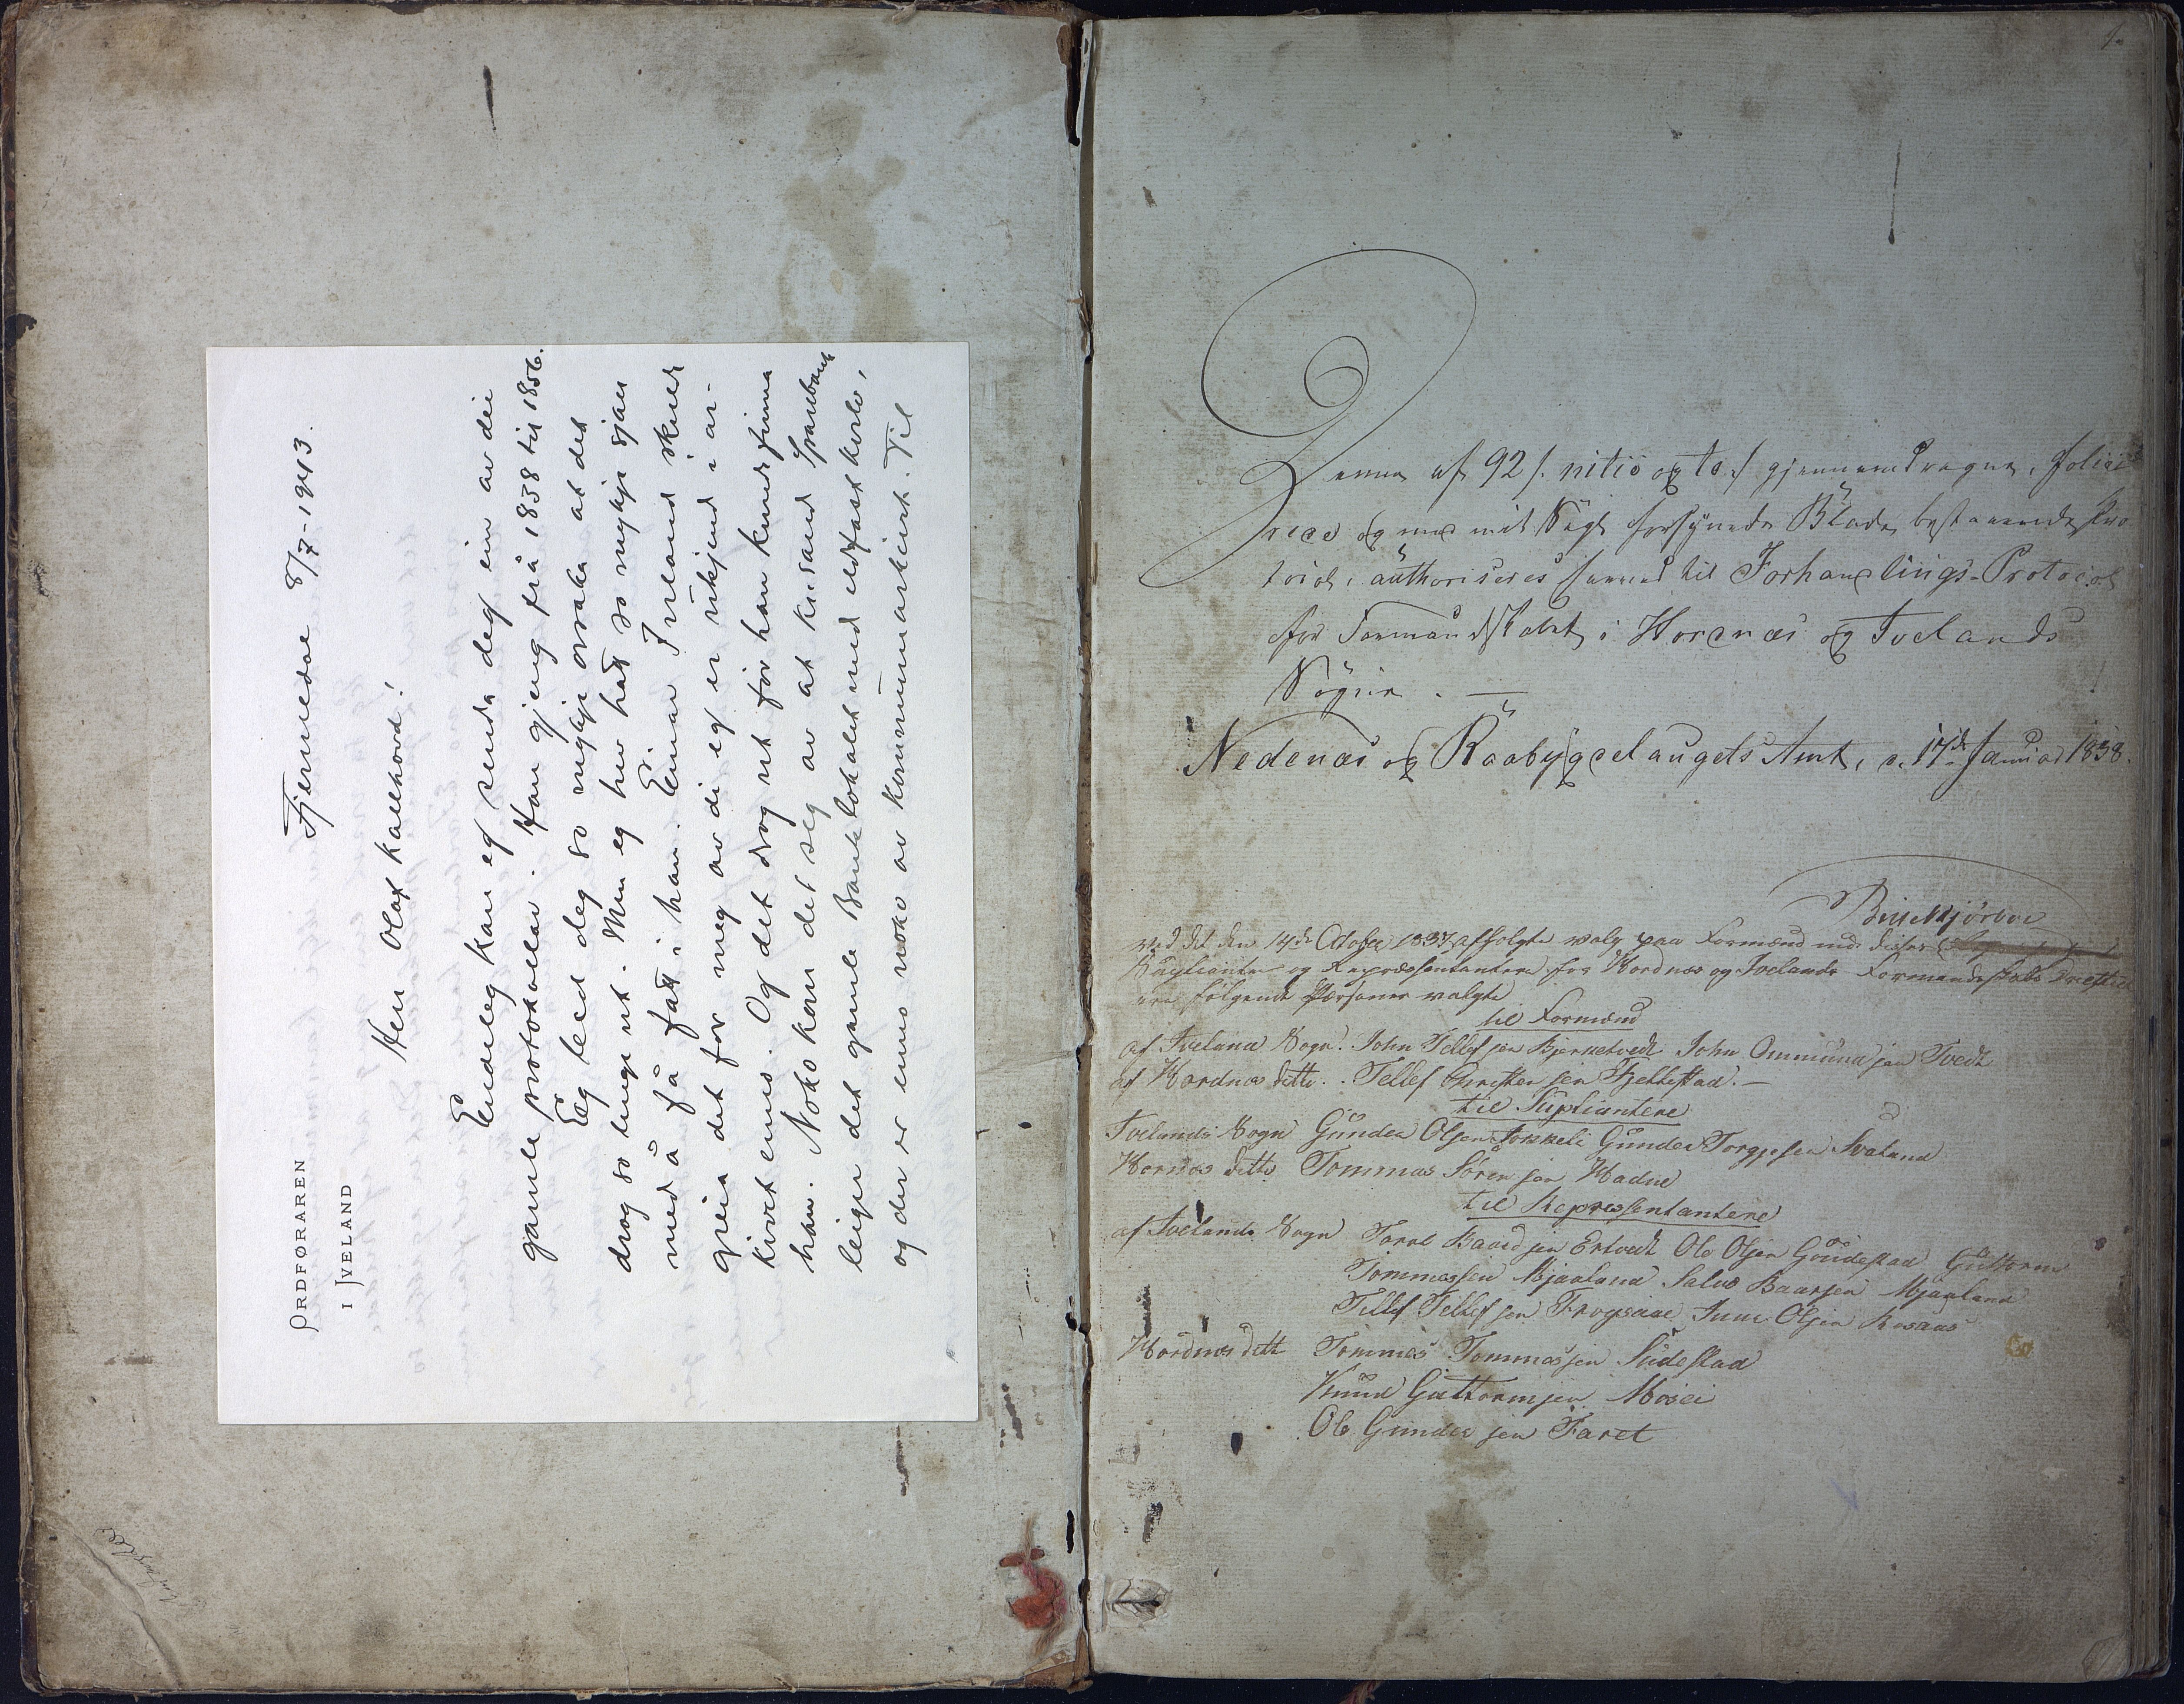 ORDFØRAREN
I IVELAND
Fjermedal 8/7-1943.
Herr Olaf Kallhovd!
Endeleg kan eg senda deg ein av dei
gamle protokollar. Han gjeng frå 1838 til 1856.
Eg leid deg so mykje orsaka at det
drog so lenge ut. Men eg hev hatt so mykje sjau
med å få fatt i han. Einar Freland skulde
greia det for meg av di eg er ukjend i ar-
kivet enno. Og det drog ut før han kunde finna
han. Noko kom det seg av at Kr.sand Sparebank
leiger det gamle Banklokalet med eldfast kvelv,
og der er enno noko av kommunearkivet. Til
1.
Denne af 92 /: nitio og to :/ gjennemdragne, folie-
rede og med mit Segl forsynede Blade bestaaende Pro
tocol, authoriseres herved til Forhandlings-Protocol
for Formandskabet i Hordnæs og Ivelands
Sogne. —
Nedenæs og Raabygdelaugets Amt, d. 17de Januar 1838.
Bille Kjørboe
ved det den 14de October 1837 afholdte valg paa Formænd med disses
Supliantere og Repræsentantere for Hordnæs og Ivelands Formandskabs District
ere følgende Personer valgte
til Formænd
af Iveland Sogn: John Tellefsen Bjerketvedt John Ommundsen Tvedt
af Hordnæs ditto.. Tellef Christensen Fjeldestad. —
til Supliantere
Ivelands Sogn Gunder Olsen Jokkeli Gunder Torgjesen Svaland
Hornæs ditto Tommas Sørensen Haduel
til Repræsentantere
af Ivelands Sogn Toral Baardsen Ertvedt Ole Olsen Goudestad Guttorm
Tommassen Mjaaland Salve Baarsen Mjaaland
Tellef Tellefsen Frøysaae Juue Olsen Rosaas
Hordnæs ditto Tommas Tommassen Sudestad
Knud Guttormsen Mosei
Ole Gundersen Faret